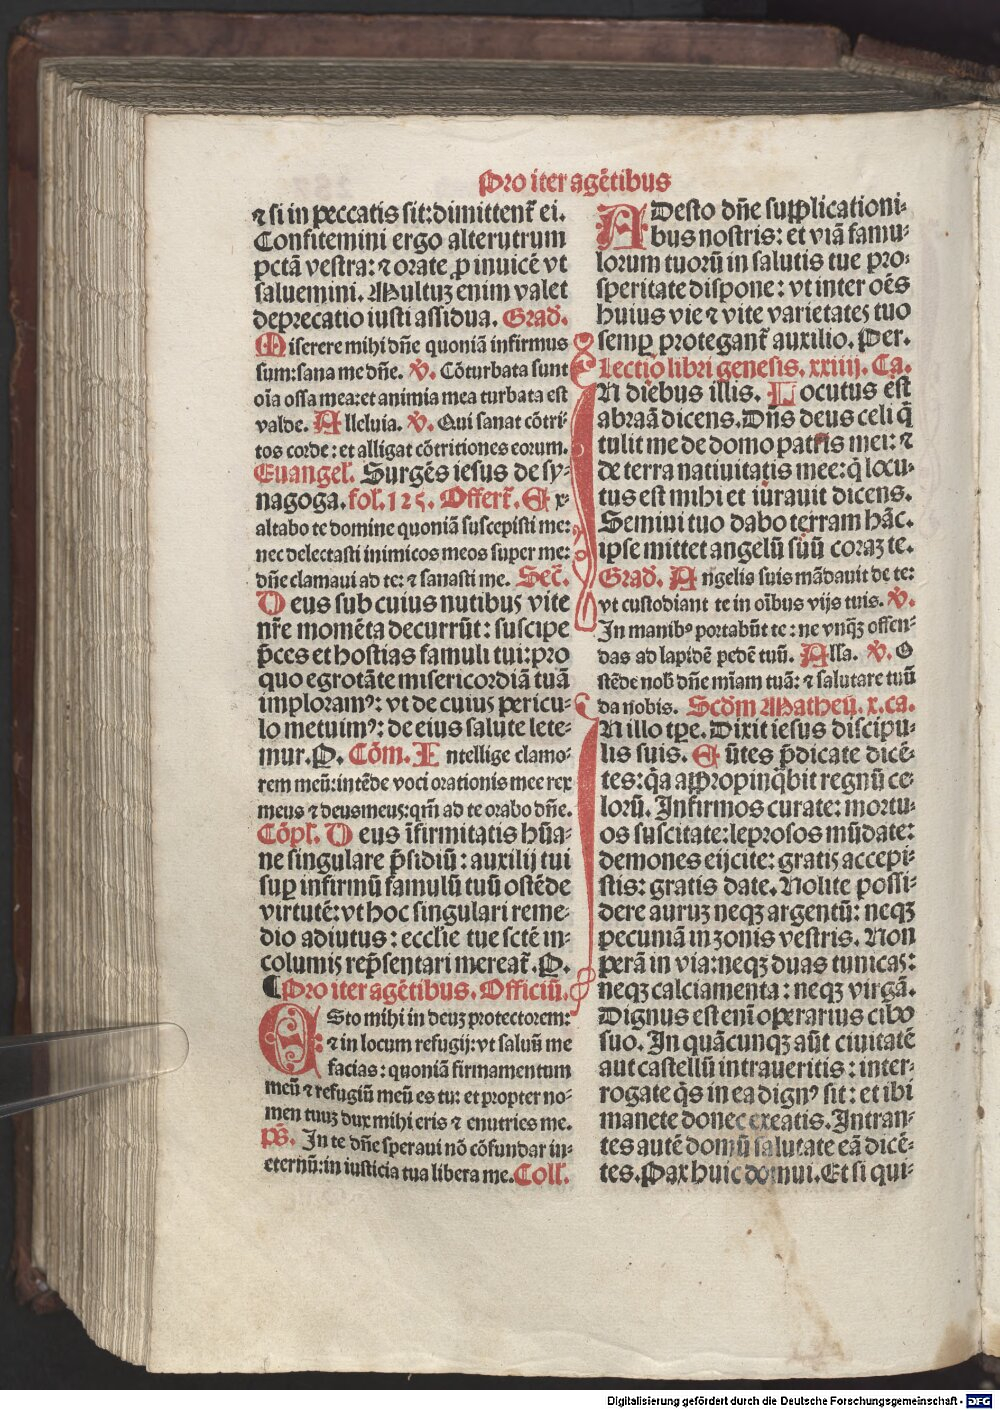 Pro iter agẽtibus
⁊ si in peccatis sit: dimittent̃ ei.
Confitemini ergo alterutrum
pctã vestra: ⁊ orate ꝓ inuicẽ vt
saluemini. Multuʒ enim valet
deprecatio iusti assidua. Grad̃.
Miserere mihi dñe quoniã infirmus
sum: sana me dñe. ℣. Cõturbata sunt
oĩa ossa mea: et anima mea turbata est
valde. Alleluia. ℣. Qui sanat cõtri-
tos corde: et alligat cõtritiones eorum.
Euangel̃. Surgẽs iesus de sy-
nagoga. fol. 125. Offert̃. Ex-
altabo te domine quoniã suscepisti me:
nec delectasti inimicos meos super me:
dñe clamaui ad te: ⁊ sanasti me. Sec̃.
Deus sub cuius nutibus vite
nr̃e momẽta decurrũt: suscipe
p̃ces et hostias famuli tui: pro
quo egrotãte misericordiã tuã
imploramꝰ: vt de cuius pericu-
lo metuimꝰ: de eius salute lete-
mur. P. Cõm. Intellige clamo-
rem meũ: intẽde voci orationis mee rex
meus ⁊ deus meus: qm̃ ad te orabo dñe.
Cõpl̃. Deus ĩfirmitatis hũa-
ne singulare p̃sidiũ: auxilij tui
suꝑ infirmũ famulũ tuũ ostẽde
virtutẽ: vt hoc singulari reme-
dio adiutus: ecclie tue sctẽ in-
columis rep̃sentari mereat̃. P.
¶Pro iter agẽtibus. Officiũ.
ESto mihi in deuʒ protectorem:
⁊ in locum refugij: vt saluũ me
facias: quoniã firmamentum
meũ ⁊ refugiũ meũ es tu: et propter no-
men tuuʒ dux mihi eris ⁊ enutries me.
Pš. In te dñe speraui nõ cõfundar in-
eternũ: in iusticia tua libera me. Coll̃.
ADesto dñe supplicationi-
bus nostris: et viã famu-
lorum tuorũ in salutis tue pro-
speritate dispone: vt inter oẽs
huius vie ⁊ vite varietates tuo
semꝑ protegant̃ auxilio. Per.
Lectio libri genesis. xxiiij. Ca.
IN diebus illis. Locutus est
abraã dicens. Dñs deus celi q̃
tulit me de domo patris mei: ⁊
de terra natiuitatis mee: q̃ locu-
tus est mihi et iurauit dicens.
Semini tuo dabo terram hãc.
ipse mittet angelũ suũ coraʒ te.
Grad̃. Angelis suis mãdauit de te:
vt custodiant te in oĩbus vijs tuis. ℣.
In manibꝰ portabũt te: ne vnqʒ offen-
das ad lapidẽ pedẽ tuũ. Alla. ℣. O
stẽde nob̃ dñe mĩam tuã: ⁊ salutare tuũ
da nobis. Scdm Matheũ. x. ca.
IN illo tp̃e. Dixit iesus discipu-
lis suis. Eũtes p̃dicate dicẽ-
tes: q̃a appropinq̃bit regnũ ce-
lorũ. Infirmos curate: mortu-
os suscitate: leprosos mũdate:
demones eijcite: gratis accepi-
stis: gratis date. Nolite possi-
dere auruʒ neqʒ argentũ: neqʒ
pecuniã in zonis vestris. Non
perã in via: neqʒ duas tunicas:
neqʒ calciamenta: neqʒ virgã.
Dignus est enĩ operarius cibo
suo. In quãcunqʒ aũt ciuitatẽ
aut castellũ intraueritis: inter-
rogate q̃s in ea dignꝰ sit: et ibi
manete donec exeatis. Intran-
tes autẽ domũ salutate eã dicẽ-
tes. Pax huic domui. Et si qui-
Digitalisierung gefördert durch die Deutsche Forschungsgemeinschaft - DFG